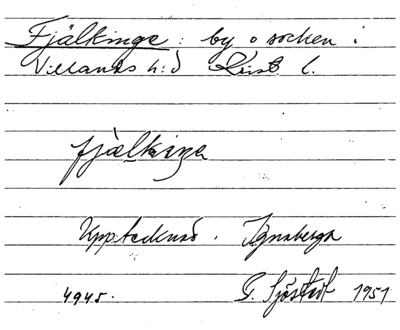 Fjälkinge: by o socken i
Villands h:d Krist. l.
fjælkinga
Upptecknad. Ignaberga
4945. G. Sjöstedt 1951